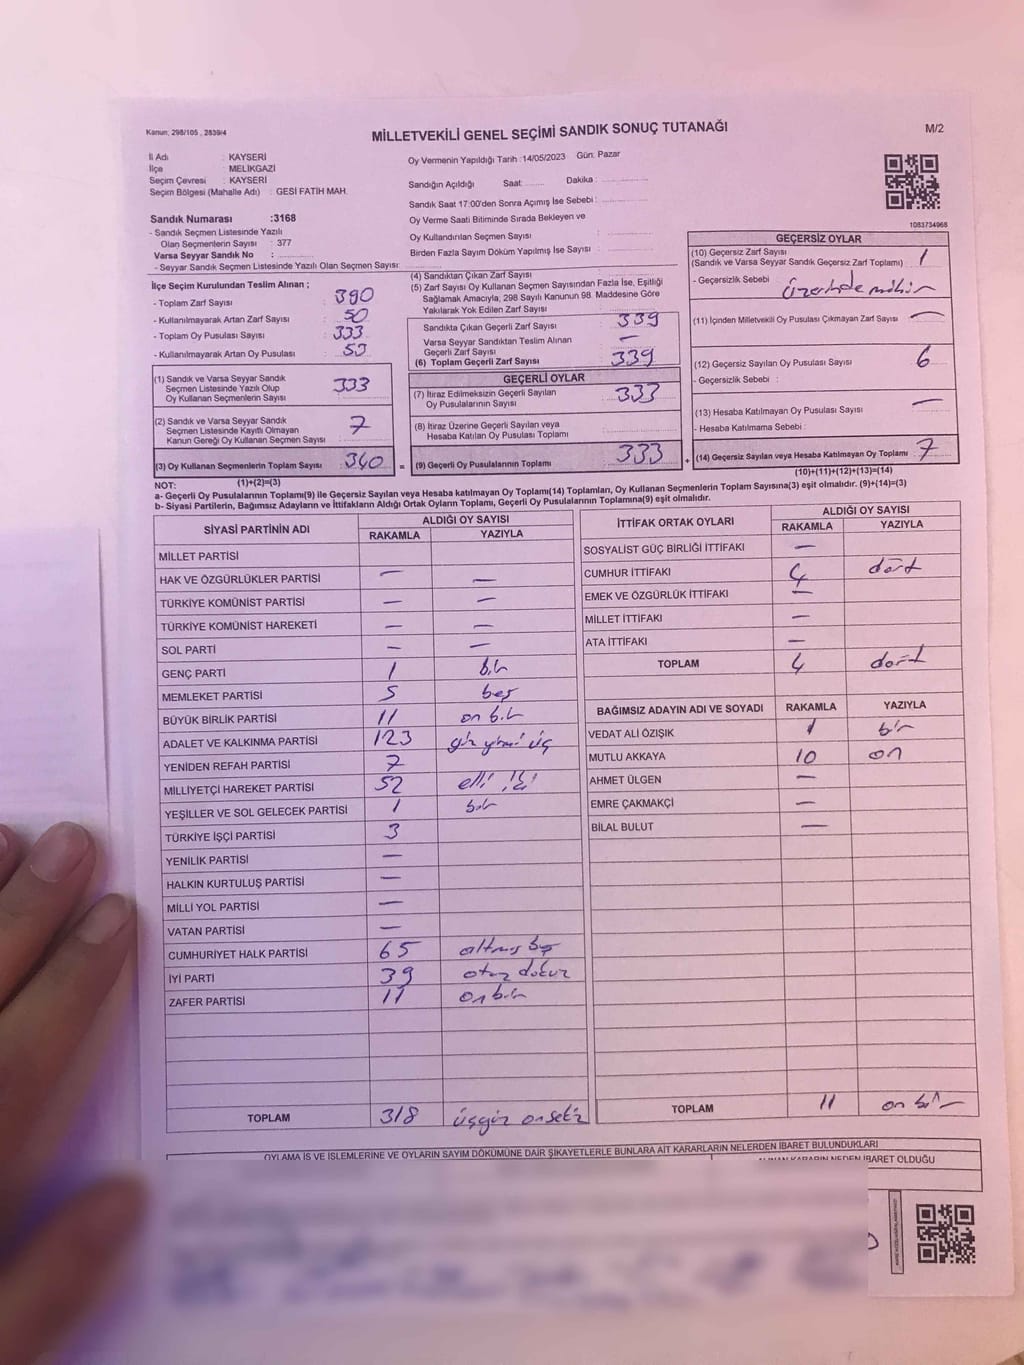 Kanun; 298/105 , 2839/4
MİLLETVEKİLİ GENEL SEÇİMİ SANDIK SONUÇ TUTANAĞI
M/2
İl Adı : KAYSERİ
İlçe : MELİKGAZİ
Seçim Çevresi : KAYSERİ
Seçim Bölgesi (Mahalle Adı) : GESİ FATİH MAH.
Sandık Numarası :3168
- Sandık Seçmen Listesinde Yazılı
Olan Seçmenlerin Sayısı : 377
Varsa Seyyar Sandık No :
- Seyyar Sandık Seçmen Listesinde Yazılı Olan Seçmen Sayısı:
İlçe Seçim Kurulundan Teslim Alınan ;
- Toplam Zarf Sayısı : 390
- Kullanılmayarak Artan Zarf Sayısı : 50
- Toplam Oy Pusulası Sayısı : 333
- Kullanılmayarak Artan Oy Pusulası :
(1) Sandık ve Varsa Seyyar Sandık
Seçmen Listesinde Yazılı Olup
Oy Kullanan Seçmenlerin Sayısı : 333
(2) Sandık ve Varsa Seyyar Sandık
Seçmen Listesinde Kayıtlı Olmayan
Kanun Gereği Oy Kullanan Seçmen Sayısı : 7
(3) Oy Kullanan Seçmenlerin Toplam Sayısı : 340
(1)+(2)=(3)
Oy Vermenin Yapıldığı Tarih :14/05/2023 Gün: Pazar
Sandığın Açıldığı Saat: Dakika :
Sandık Saat 17:00'den Sonra Açımış İse Sebebi :
Oy Verme Saati Bitiminde Sırada Bekleyen ve
Oy Kullandırılan Seçmen Sayısı :
Birden Fazla Sayım Döküm Yapılmış İse Sayısı :
(4) Sandıktan Çıkan Zarf Sayısı :
(5) Zarf Sayısı Oy Kullanan Seçmen Sayısından Fazla İse, Eşitliği
Sağlamak Amacıyla; 298 Sayılı Kanunun 98. Maddesine Göre
Yakılarak Yok Edilen Zarf Sayısı :
Sandıkta Çıkan Geçerli Zarf Sayısı : 339
Varsa Seyyar Sandıktan Teslim Alınan
Geçerli Zarf Sayısı : —
(6) Toplam Geçerli Zarf Sayısı : 339
GEÇERLİ OYLAR
(7) İtiraz Edilmeksizin Geçerli Sayılan
Oy Pusulalarının Sayısı : 333
(8) İtiraz Üzerine Geçerli Sayılan veya
Hesaba Katılan Oy Pusulası Toplamı :
= (9) Geçerli Oy Pusulalarının Toplamı : 333
1083734968
GEÇERSİZ OYLAR
(10) Geçersiz Zarf Sayısı
(Sandık ve Varsa Seyyar Sandık Geçersiz Zarf Toplamı) : 1
- Geçersizlik Sebebi : üzerinde mühür
(11) İçinden Milletvekili Oy Pusulası Çıkmayan Zarf Sayısı : —
(12) Geçersiz Sayılan Oy Pusulası Sayısı : 6
- Geçersizlik Sebebi :
(13) Hesaba Katılmayan Oy Pusulası Sayısı : —
- Hesaba Katılmama Sebebi :
+ (14) Geçersiz Sayılan veya Hesaba Katılmayan Oy Toplamı : 7
(10)+(11)+(12)+(13)=(14)
NOT:
a- Geçerli Oy Pusulalarının Toplamı(9) ile Geçersiz Sayılan veya Hesaba katılmayan Oy Toplamı(14) Toplamları, Oy Kullanan Seçmenlerin Toplam Sayısına(3) eşit olmalıdır. (9)+(14)=(3)
b- Siyasi Partilerin, Bağımsız Adayların ve İttifakların Aldığı Ortak Oyların Toplamı, Geçerli Oy Pusulalarının Toplamına(9) eşit olmalıdır.
SİYASİ PARTİNİN ADI
ALDIĞI OY SAYISI
RAKAMLA YAZIYLA
MİLLET PARTİSİ
HAK VE ÖZGÜRLÜKLER PARTİSİ — —
TÜRKİYE KOMÜNİST PARTİSİ — —
TÜRKİYE KOMÜNİST HAREKETİ — —
SOL PARTİ — —
GENÇ PARTİ 1 bir
MEMLEKET PARTİSİ 5 beş
BÜYÜK BİRLİK PARTİSİ 11 on bir
ADALET VE KALKINMA PARTİSİ 123 yüz yirmi üç
YENİDEN REFAH PARTİSİ 7
MİLLİYETÇİ HAREKET PARTİSİ 52 elli iki
YEŞİLLER VE SOL GELECEK PARTİSİ 1 bir
TÜRKİYE İŞÇİ PARTİSİ 3
YENİLİK PARTİSİ —
HALKIN KURTULUŞ PARTİSİ —
MİLLİ YOL PARTİSİ —
VATAN PARTİSİ —
CUMHURİYET HALK PARTİSİ 65 altmış beş
İYİ PARTİ 39 otuz dokuz
ZAFER PARTİSİ 11 on bir
TOPLAM 318 üçyüz onsekiz
İTTİFAK ORTAK OYLARI
ALDIĞI OY SAYISI
RAKAMLA YAZIYLA
SOSYALİST GÜÇ BİRLİĞİ İTTİFAKI —
CUMHUR İTTİFAKI 4 dört
EMEK VE ÖZGÜRLÜK İTTİFAKI —
MİLLET İTTİFAKI —
ATA İTTİFAKI —
TOPLAM 4 dört
BAĞIMSIZ ADAYIN ADI VE SOYADI RAKAMLA YAZIYLA
VEDAT ALİ ÖZIŞIK 1 bir
MUTLU AKKAYA 10 on
AHMET ÜLGEN —
EMRE ÇAKMAKÇİ —
BİLAL BULUT —
TOPLAM 11 on bir
OYLAMA İŞ VE İŞLEMLERİNE VE OYLARIN SAYIM DÖKÜMÜNE DAİR ŞİKAYETLERLE BUNLARA AİT KARARLARIN NELERDEN İBARET BULUNDUKLARI
NEDEN İBARET OLDUĞU